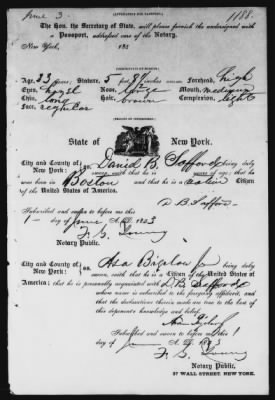 (APPLICATION FOR PASSPORT.)
June 3. 1188.
The Hon. the Secretary of State, will please furnish the undersigned with
a Passport, addressed care of the Notary.
New York, 185
(DESCRIPTION OF PERSON.)
Age, 33 years, Stature, 5 feet 8½ inches Forehead, high
Eyes, hazel Nose, large Mouth, medium
Chin, long Hair, brown Complexion, light
Face, regular
State of New York.
City and County of New York: ss. David B. Safford being duly
sworn, saith that he is years of age; that he
was born in Boston and that he is a native Citizen
of the United States of America.
Subscribed and sworn to before me this
1 day of June A. D. 1853 D B Safford
F. G. Young
Notary Public.
City and County of New York: ss. Asa Bigelow Jr being duly
sworn, saith that he is a Citizen of the United States of
America; that he is personally acquainted with D. B. Safford
whose name is subscribed to the foregoing affidavit, and
that the declarations therein made are true to the best of
this deponent's knowledge and belief.
Asa
Subscribed and sworn to before me this 1
day of June A. D. 1853
F. G. Young
Notary Public,
57 WALL STREET, NEW YORK.